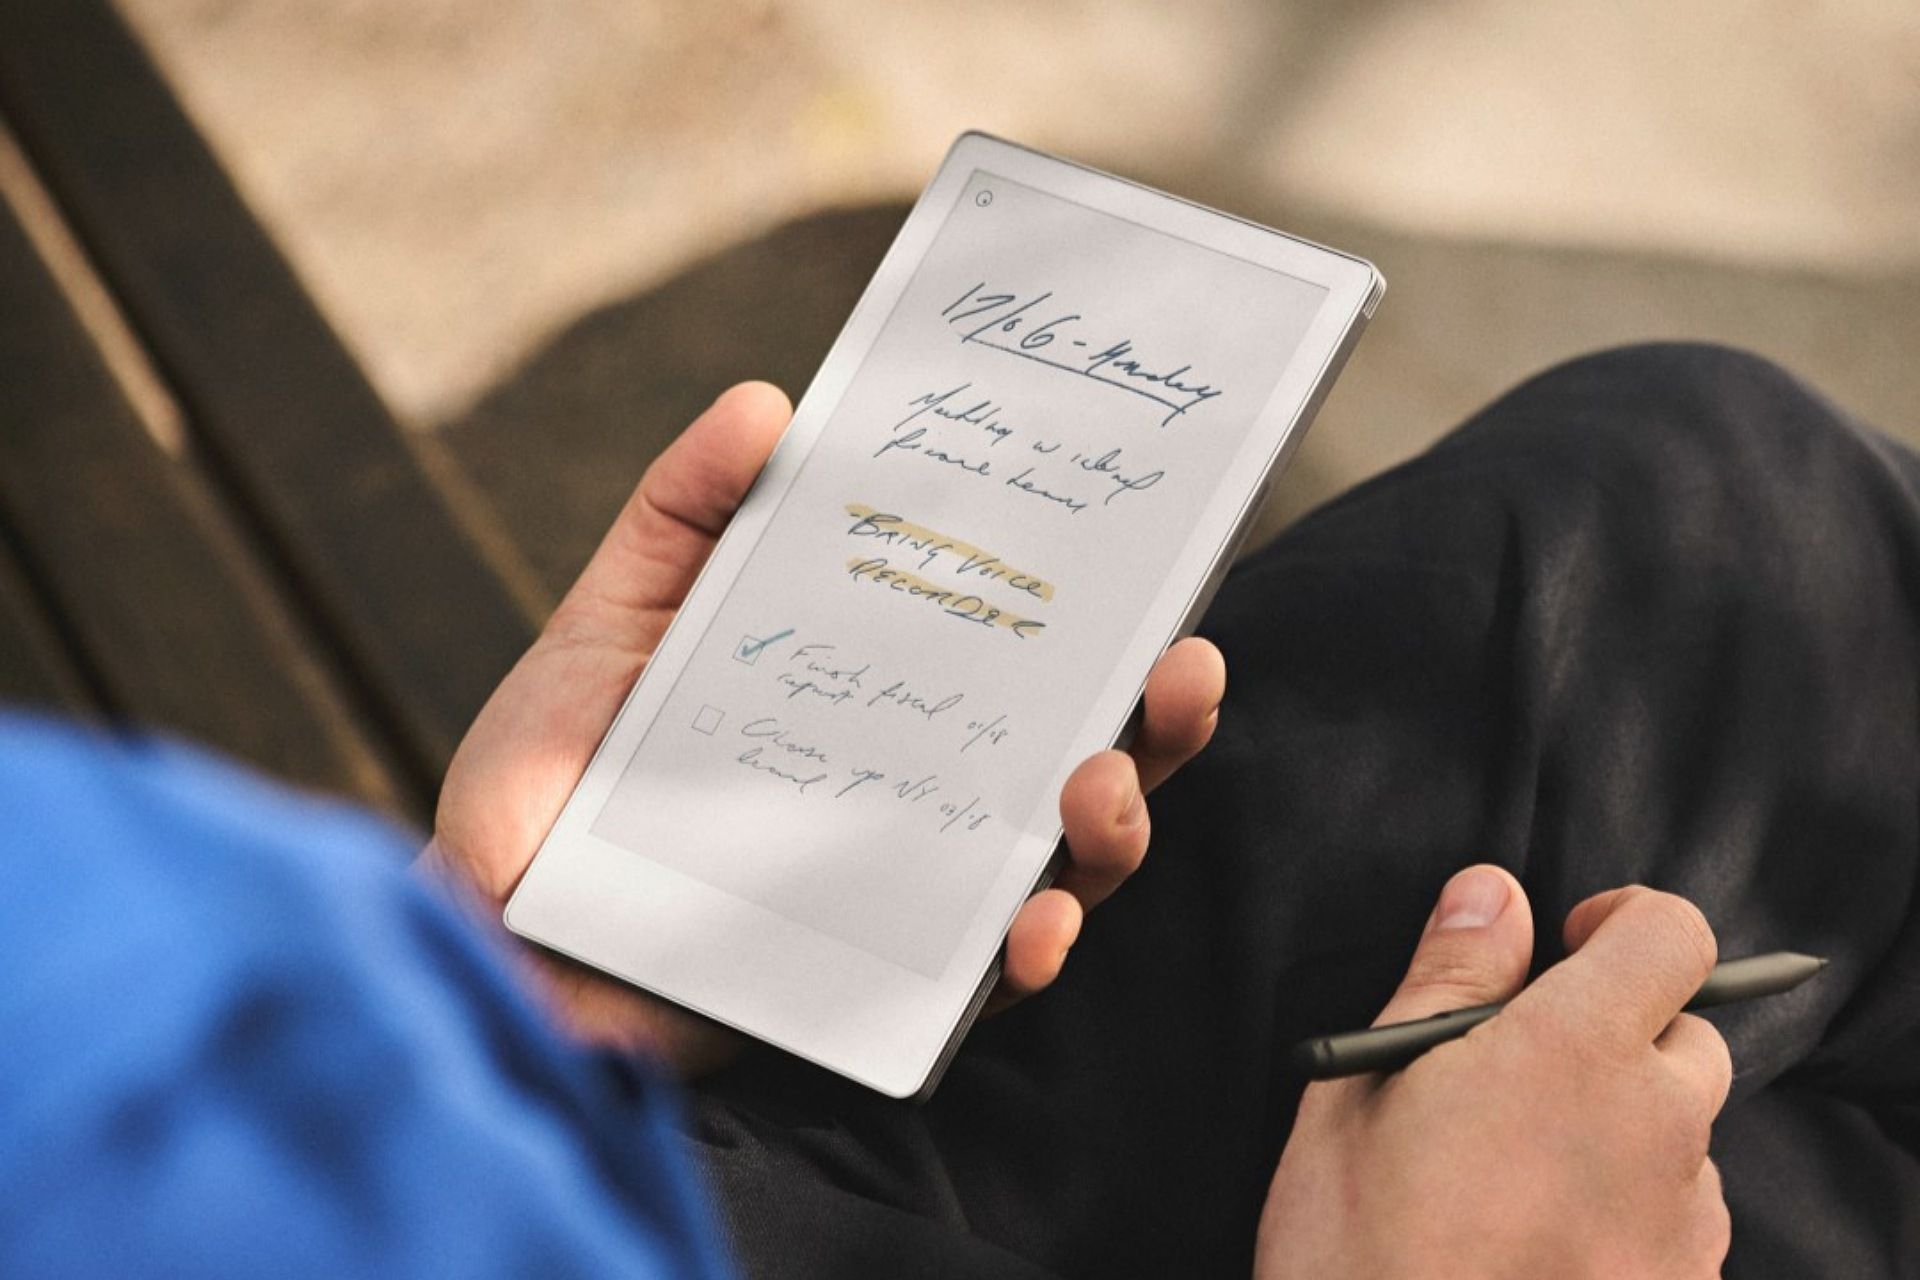 17/06 - Monday
Meeting w
finance team
- BRING VOICE
RECORDER
Finish fiscal 01/18
report
Close up NY 03/18